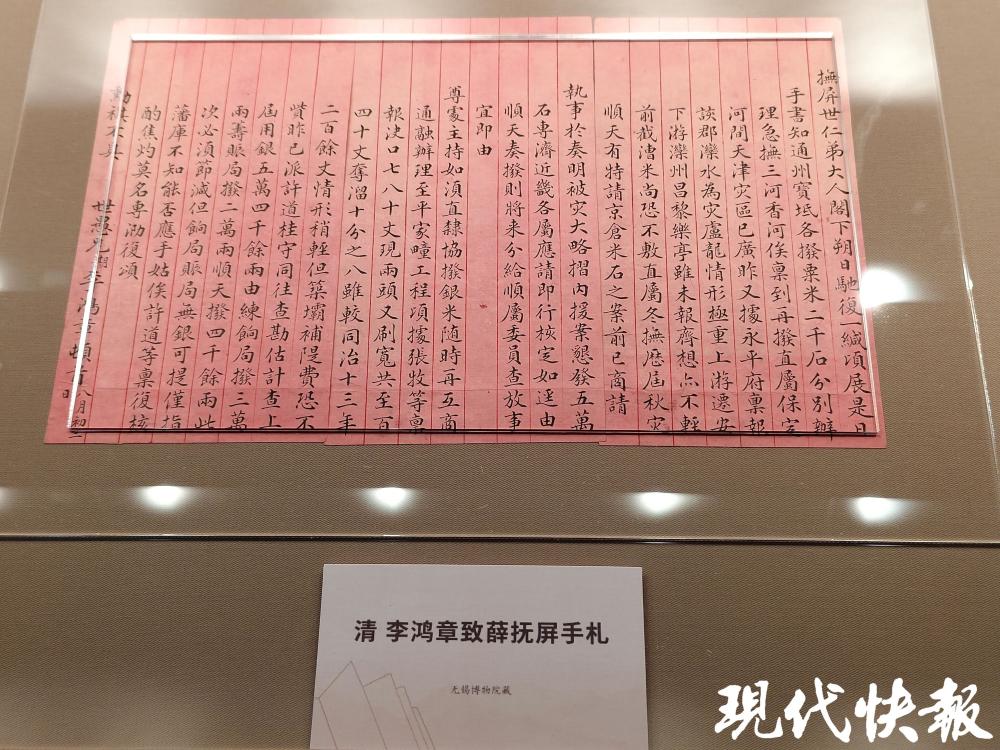 撫屏世仁弟大人閣下朔日馳復一緘項展是日
手書知通州寶坻各撥粟米二千石分別辦
理急撫三河香河俟稟到再撥直屬保定
河間天津灾區已廣昨又據永平府稟報
該郡灤水為灾盧龍情形極重上游遷安
下游灤州昌黎樂亭雖未報齊想亦不輕
前截漕米尚恐不敷直屬冬撫歷屆秋灾
順天有特請京倉米石之案前已商請
執事於奏明被灾大略摺內援案懇發五萬
石專濟近畿各屬應請即行核定如逕由
順天奏撥則將来分給順屬委員查放事
宜即由
尊處主持如須直隸協撥銀米隨時再互商
通融辦理至平家疃工程項據張牧等稟
報決口七八十丈現兩頭又刷寬共至百
四十丈奪溜十分之八雖較同治十三年
二百餘丈情形稍輕但築壩補隄費恐不
貲昨已派許道桂守同往查勘估計查上
屆用銀五萬四千餘兩由練餉局撥三萬
兩籌賑局撥二萬兩順天撥四千餘兩此
次必須節減但餉局賑局無銀可提僅指
藩庫不知能否應手姑俟許道等稟復核
酌焦灼莫名專泐復頌
勛祺不具
世愚兄期李鴻章頓首八月初二日
清 李鸿章致薛抚屏手札
无锡博物院藏
現代快報